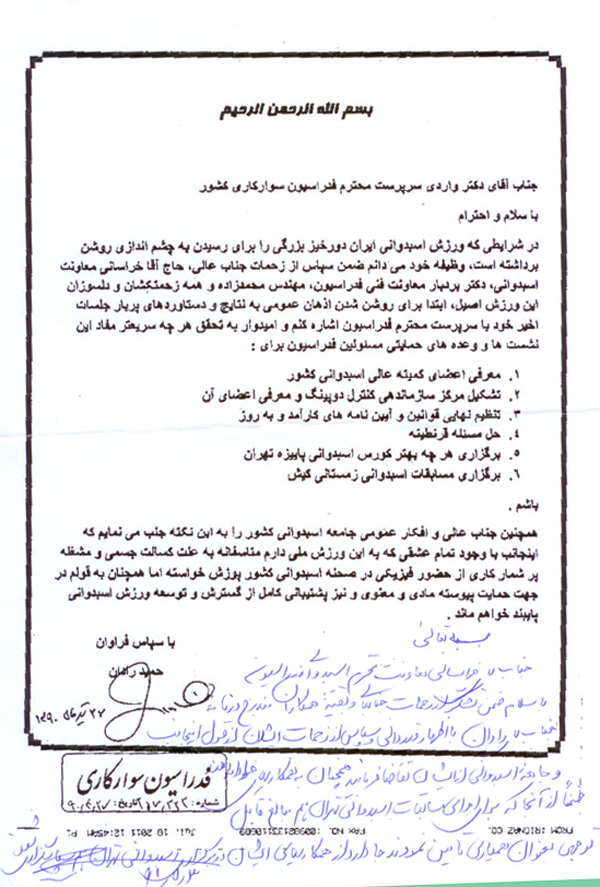 بسم الله الرحمن الرحیم
جناب آقای دکتر واردی سرپرست محترم فدراسیون سوارکاری کشور
با سلام و احترام
در شرایطی که ورزش اسبدوانی ایران دورخیز بزرگی را برای رسیدن به چشم اندازی روشن
برداشته است، وظیفه خود می دانم ضمن سپاس از زحمات جناب عالی، حاج آقا خراسانی معاونت
اسبدوانی، دکتر بردبار معاونت فنی فدراسیون، مهندس محمدزاده و همه زحمتکشان و دلسوزان
این ورزش اصیل، ابتدا برای روشن شدن اذهان عمومی به نتایج و دستاوردهای پربار جلسات
اخیر خود با سرپرست محترم فدراسیون اشاره کنم و امیدوار به تحقق هر چه سریعتر مفاد این
نشست ها و وعده های حمایتی مسئولین فدراسیون برای :
۱. معرفی اعضای کمیته عالی اسبدوانی کشور
۲. تشکیل مرکز سازماندهی کنترل دوپینگ و معرفی اعضای آن
۳. تنظیم نهایی قوانین و آیین نامه های کارآمد و به روز
۴. حل مسئله قرنطینه
۵. برگزاری هر چه بهتر کورس اسبدوانی پاییزه تهران
۶. برگزاری مسابقات اسبدوانی زمستانی کیش
باشم .
همچنین جناب عالی و افکار عمومی جامعه اسبدوانی کشور را به این نکته جلب می نمایم که
اینجانب با وجود تمام عشقی که به این ورزش ملی دارم متاسفانه به علت کسالت جسمی و مشغله
پر شمار کاری از حضور فیزیکی در صحنه اسبدوانی کشور پوزش خواسته اما همچنان به قولم در
جهت حمایت پیوسته مادی و معنوی و نیز پشتیبانی کامل از گسترش و توسعه ورزش اسبدوانی
پایبند خواهم ماند .
با سپاس فراوان
حمید رادان
۲۷ تیرماه ۱۳۹۰
بسمه تعالی
جناب آقای خراسانی معاونت محترم اسبدوانی فدراسیون
با سلام ضمن تشکر از زحمات جنابعالی و
جناب رادان با اظهار قدردانی و سپاس از زحمات ایشان از قول اینجانب
و جامعه اسبدوانی از ایشان تقاضا فرمایید همچنان به همکاری
ضمناً از آنجا که برای اجرای مسابقات اسبدوانی تهران هم مبالغ قابل
فدراسیون سوارکاری
FROM :RIONAD CO. FAX NO. :00982133310609 JUL. 18 2011 12:45AM P1
توجهی بعنوان همیاری تامین نمودند جا دارد از همکاری ایشان در اسبدوانی تهران